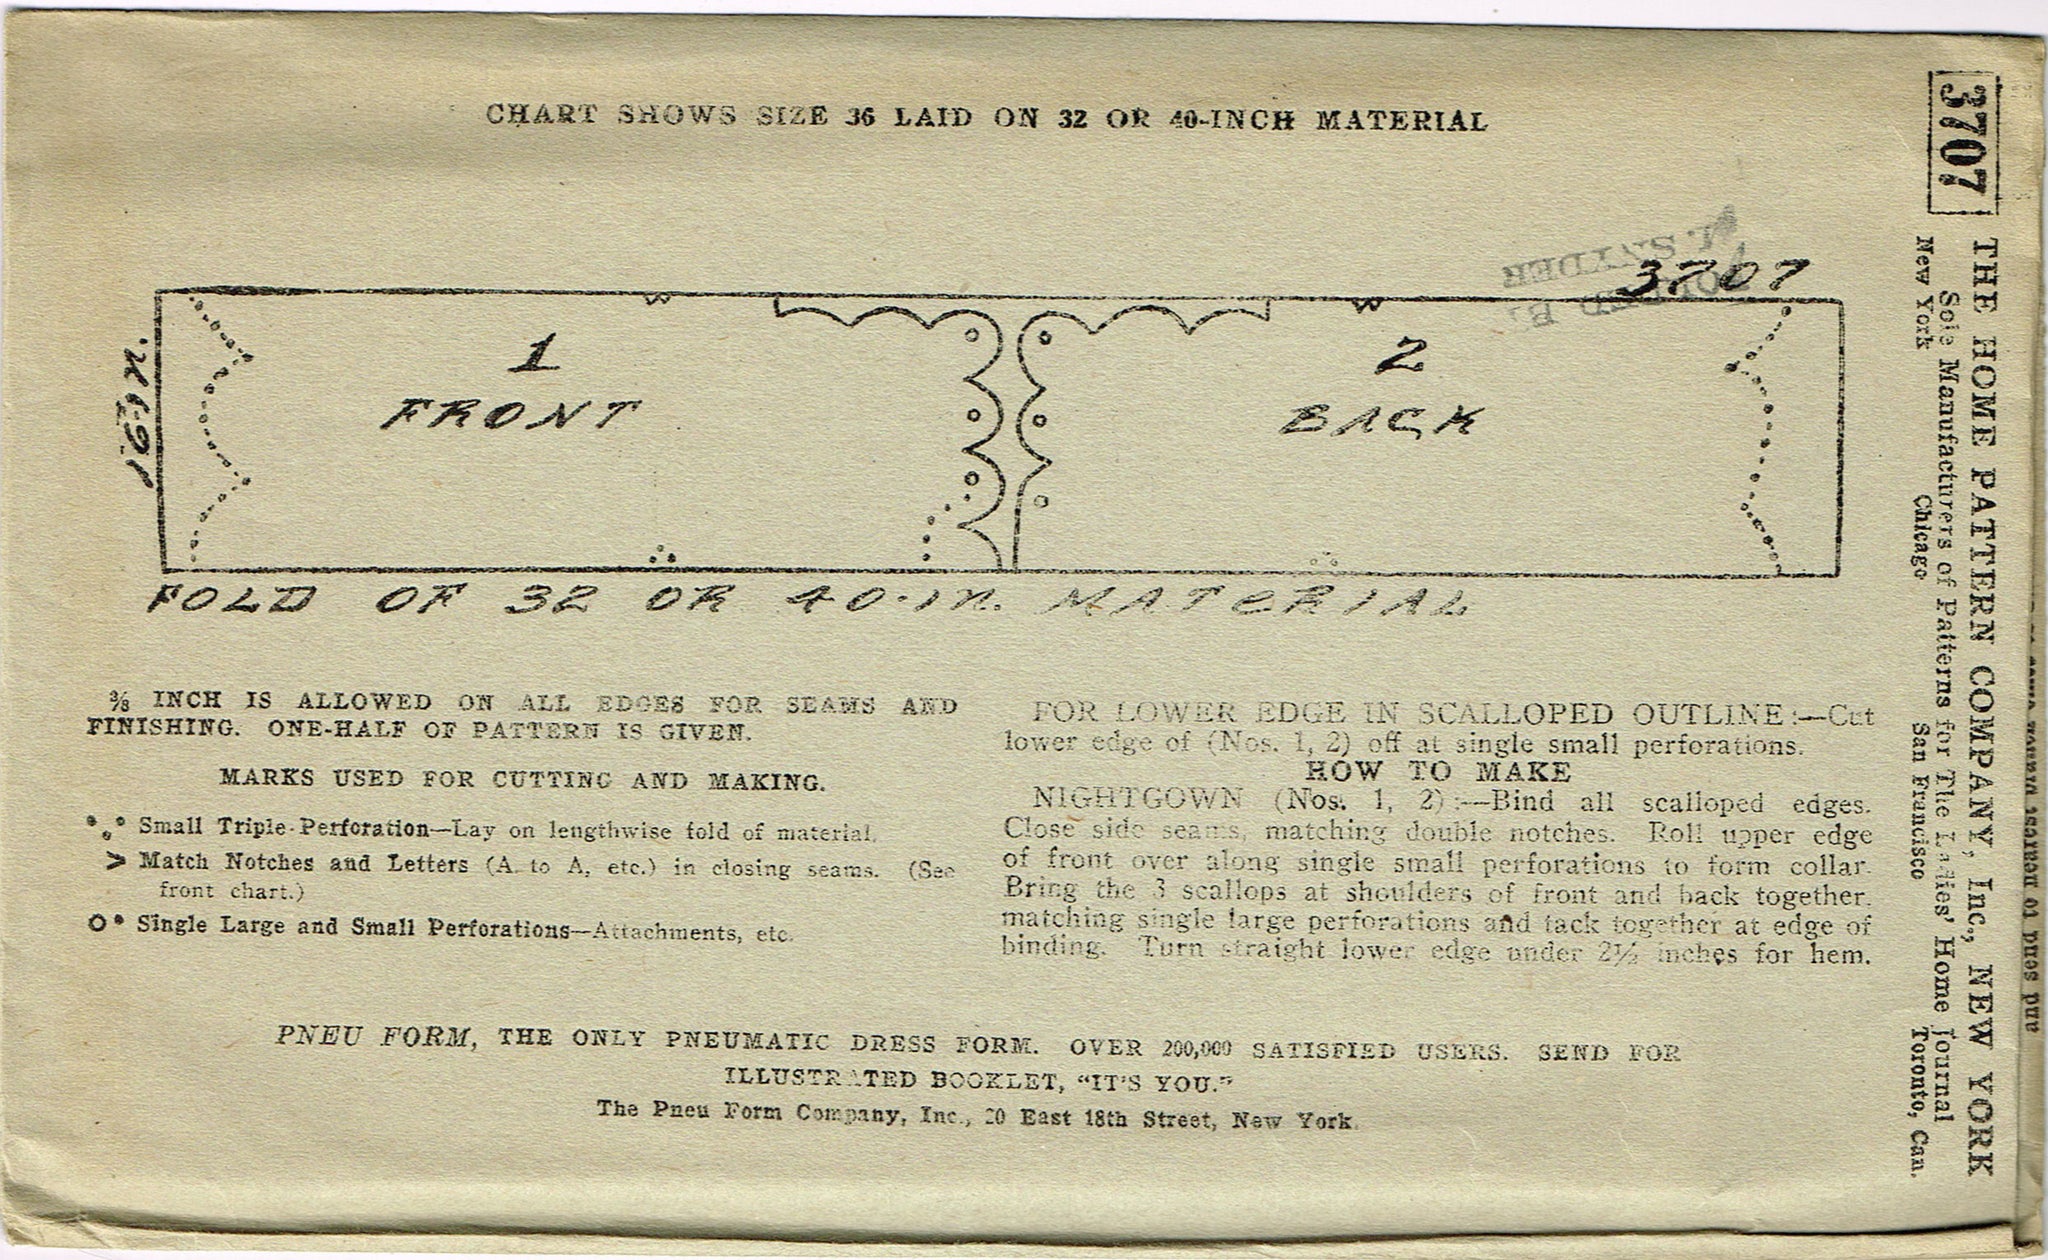 CHART SHOWS SIZE 36 LAID ON 32 OR 40-INCH MATERIAL
3707
SNYDER
1
FRONT
2
BACK
FOLD OF 32 OR 40-IN. MATERIAL
⅜ INCH IS ALLOWED ON ALL EDGES FOR SEAMS AND
FINISHING. ONE-HALF OF PATTERN IS GIVEN.
MARKS USED FOR CUTTING AND MAKING.
Small Triple Perforation—Lay on lengthwise fold of material.
Match Notches and Letters (A to A, etc.) in closing seams. (See
front chart.)
Single Large and Small Perforations—Attachments, etc.
FOR LOWER EDGE IN SCALLOPED OUTLINE:—Cut
lower edge of (Nos. 1, 2) off at single small perforations.
HOW TO MAKE
NIGHTGOWN (Nos. 1, 2):—Bind all scalloped edges.
Close side seams, matching double notches. Roll upper edge
of front over along single small perforations to form collar.
Bring the 3 scallops at shoulders of front and back together,
matching single large perforations and tack together at edge of
binding. Turn straight lower edge under 2½ inches for hem.
PNEU FORM, THE ONLY PNEUMATIC DRESS FORM. OVER 200,000 SATISFIED USERS. SEND FOR
ILLUSTRATED BOOKLET, "IT'S YOU."
The Pneu Form Company, Inc., 20 East 18th Street, New York.
3707
THE HOME PATTERN COMPANY, INC., NEW YORK
Sole Manufacturers of Patterns for The Ladies' Home Journal
New York Chicago San Francisco Toronto, Can.